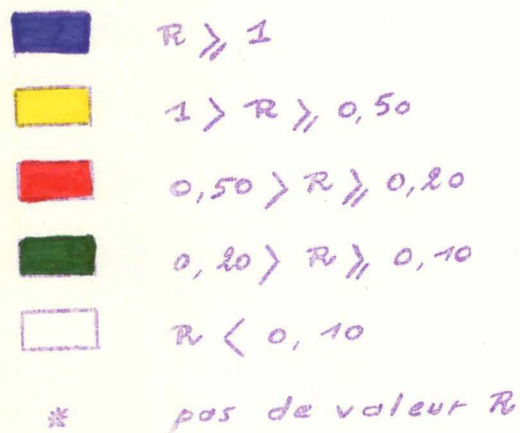 R ⩾ 1
1 > R ⩾ 0,50
0,50 > R ⩾ 0,20
0,20 > R ⩾ 0,10
R < 0,10
* pas de valeur R